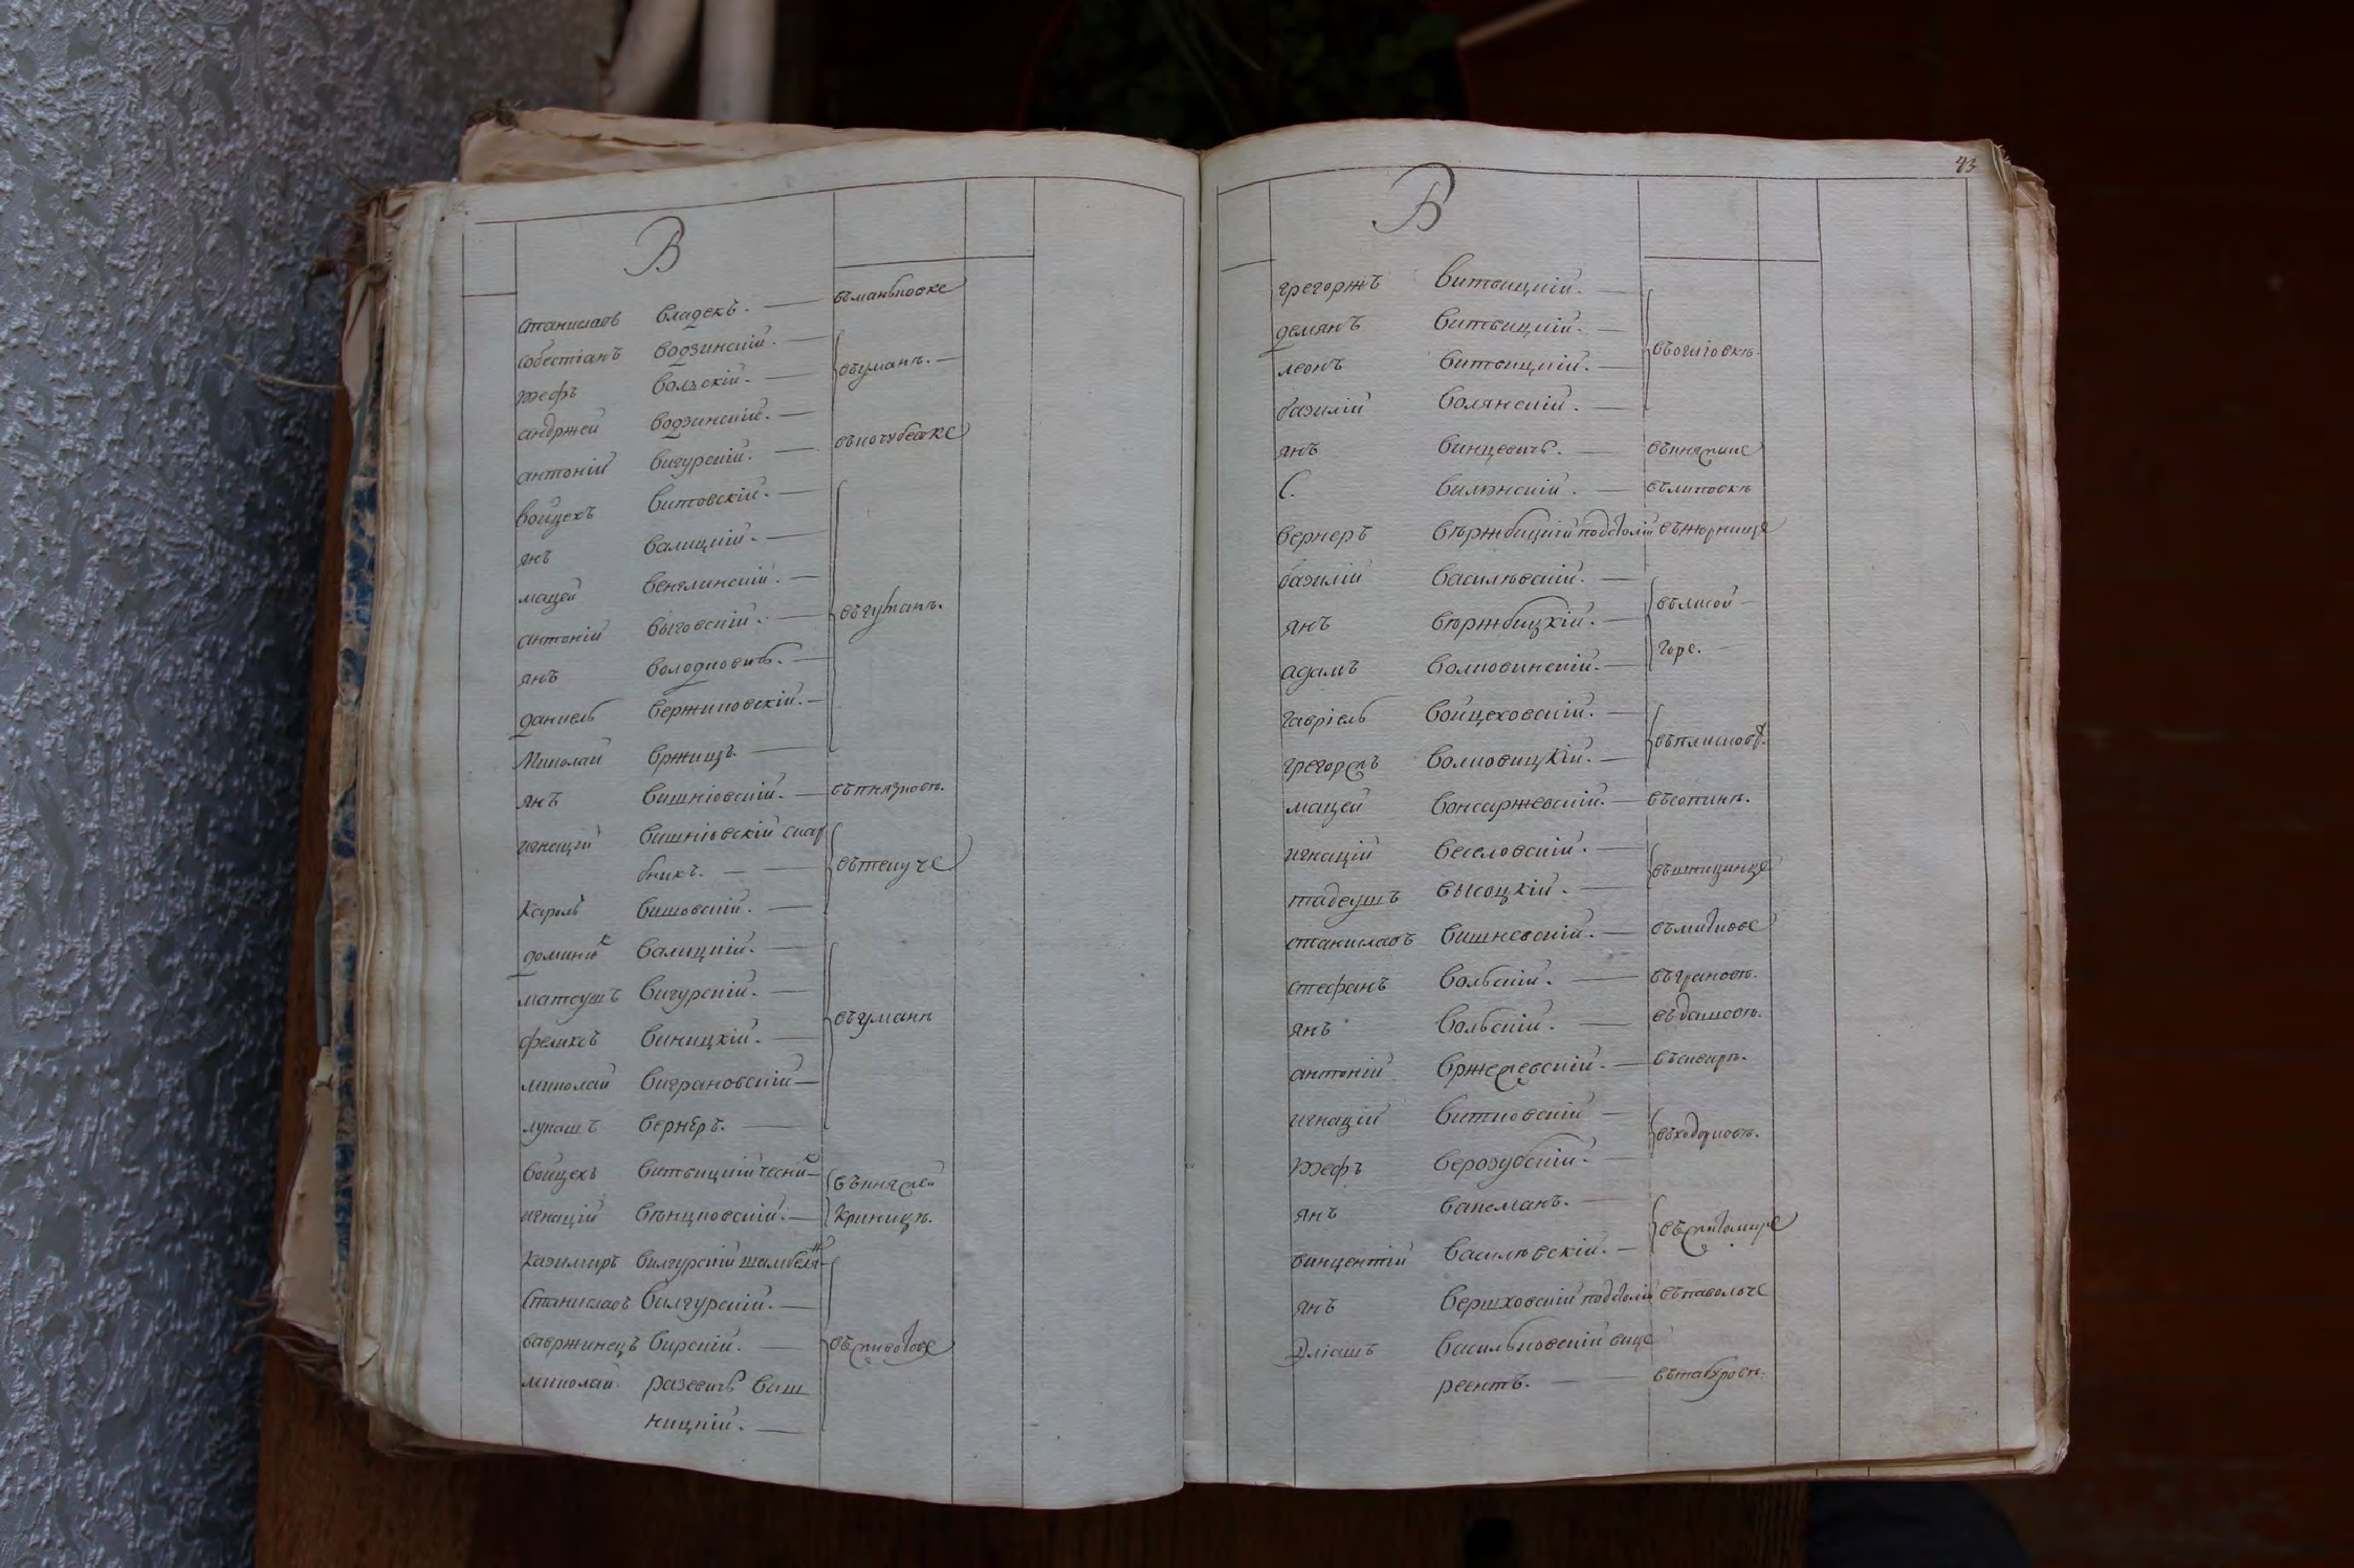 В
станиславъ владекъ. — въманьковке
собестіанъ водзинскій. —
юзефъ вольскій. — въуманѣ. —
анджей водзинскій. —
антоній вигурскій. — въкочубевке
войцехъ витовскій. —
янъ валицкій. —
мацей венглинскій. —
антоній выговскій. — въуманѣ.
янъ володковичъ. —
даниель вержиковскій. —
Миколай вржищъ. —
янъ вишніовскій. —
игнацій вишніовскій скар
бникъ. — вътепуче
Кароль вишовскій. —
доминикъ валицкій. —
матеушъ вигурскій. —
феликсъ виницкій. — въуманѣ
миколай виграновскій —
лукашъ вернеръ. —
войцехъ витвицкій чесникъ — въкняжей
игнацій вѣнцковскій. — Криницѣ.
казимиръ вилгурскій шамбелянъ
Станиславъ вилгурскій. —
вавржинецъ вирскій. — въживотове
миколай разевичъ виш
ницкій. —
43
В
грегоржъ витвицкій. —
демянъ витвицкій. —
леонъ витвицкій. —
базилій волянскій. —
янъ винцевичъ. —
С. вилѣнскій. — вълиповкѣ
вернеръ вѣржбицкій подстолій въжорнище
базилій василѣвскій. — вълисой —
янъ вѣржбицкій. — горе. —
адамъ волковинскій. —
гавріель войцеховскій. —
грегоржъ волковицкій. —
мацей вонсаржевскій. —
игнацій веселовскій. —
тадеушъ высоцкій. —
станиславъ вишневскій. —
стефанъ вольскій. — въграновѣ.
янъ вольскій. — въдашовѣ.
антоній вржещевскій. —
игнацій витковскій — въходорковѣ.
юзефъ верозубскій. —
янъ вакеманъ. —
винцентій василѣвскій. — въжитомире
янъ вершховскій подстолій въпаволоче
Эліашъ васильковскій вице
рентъ. —